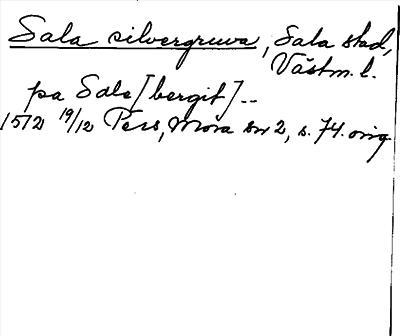 Sala silvergruva, Sala stad,
Västm. l.
pa Sale [bergit] ..
1572 19/12 Pers, Mora nr 2, s. 74. orig